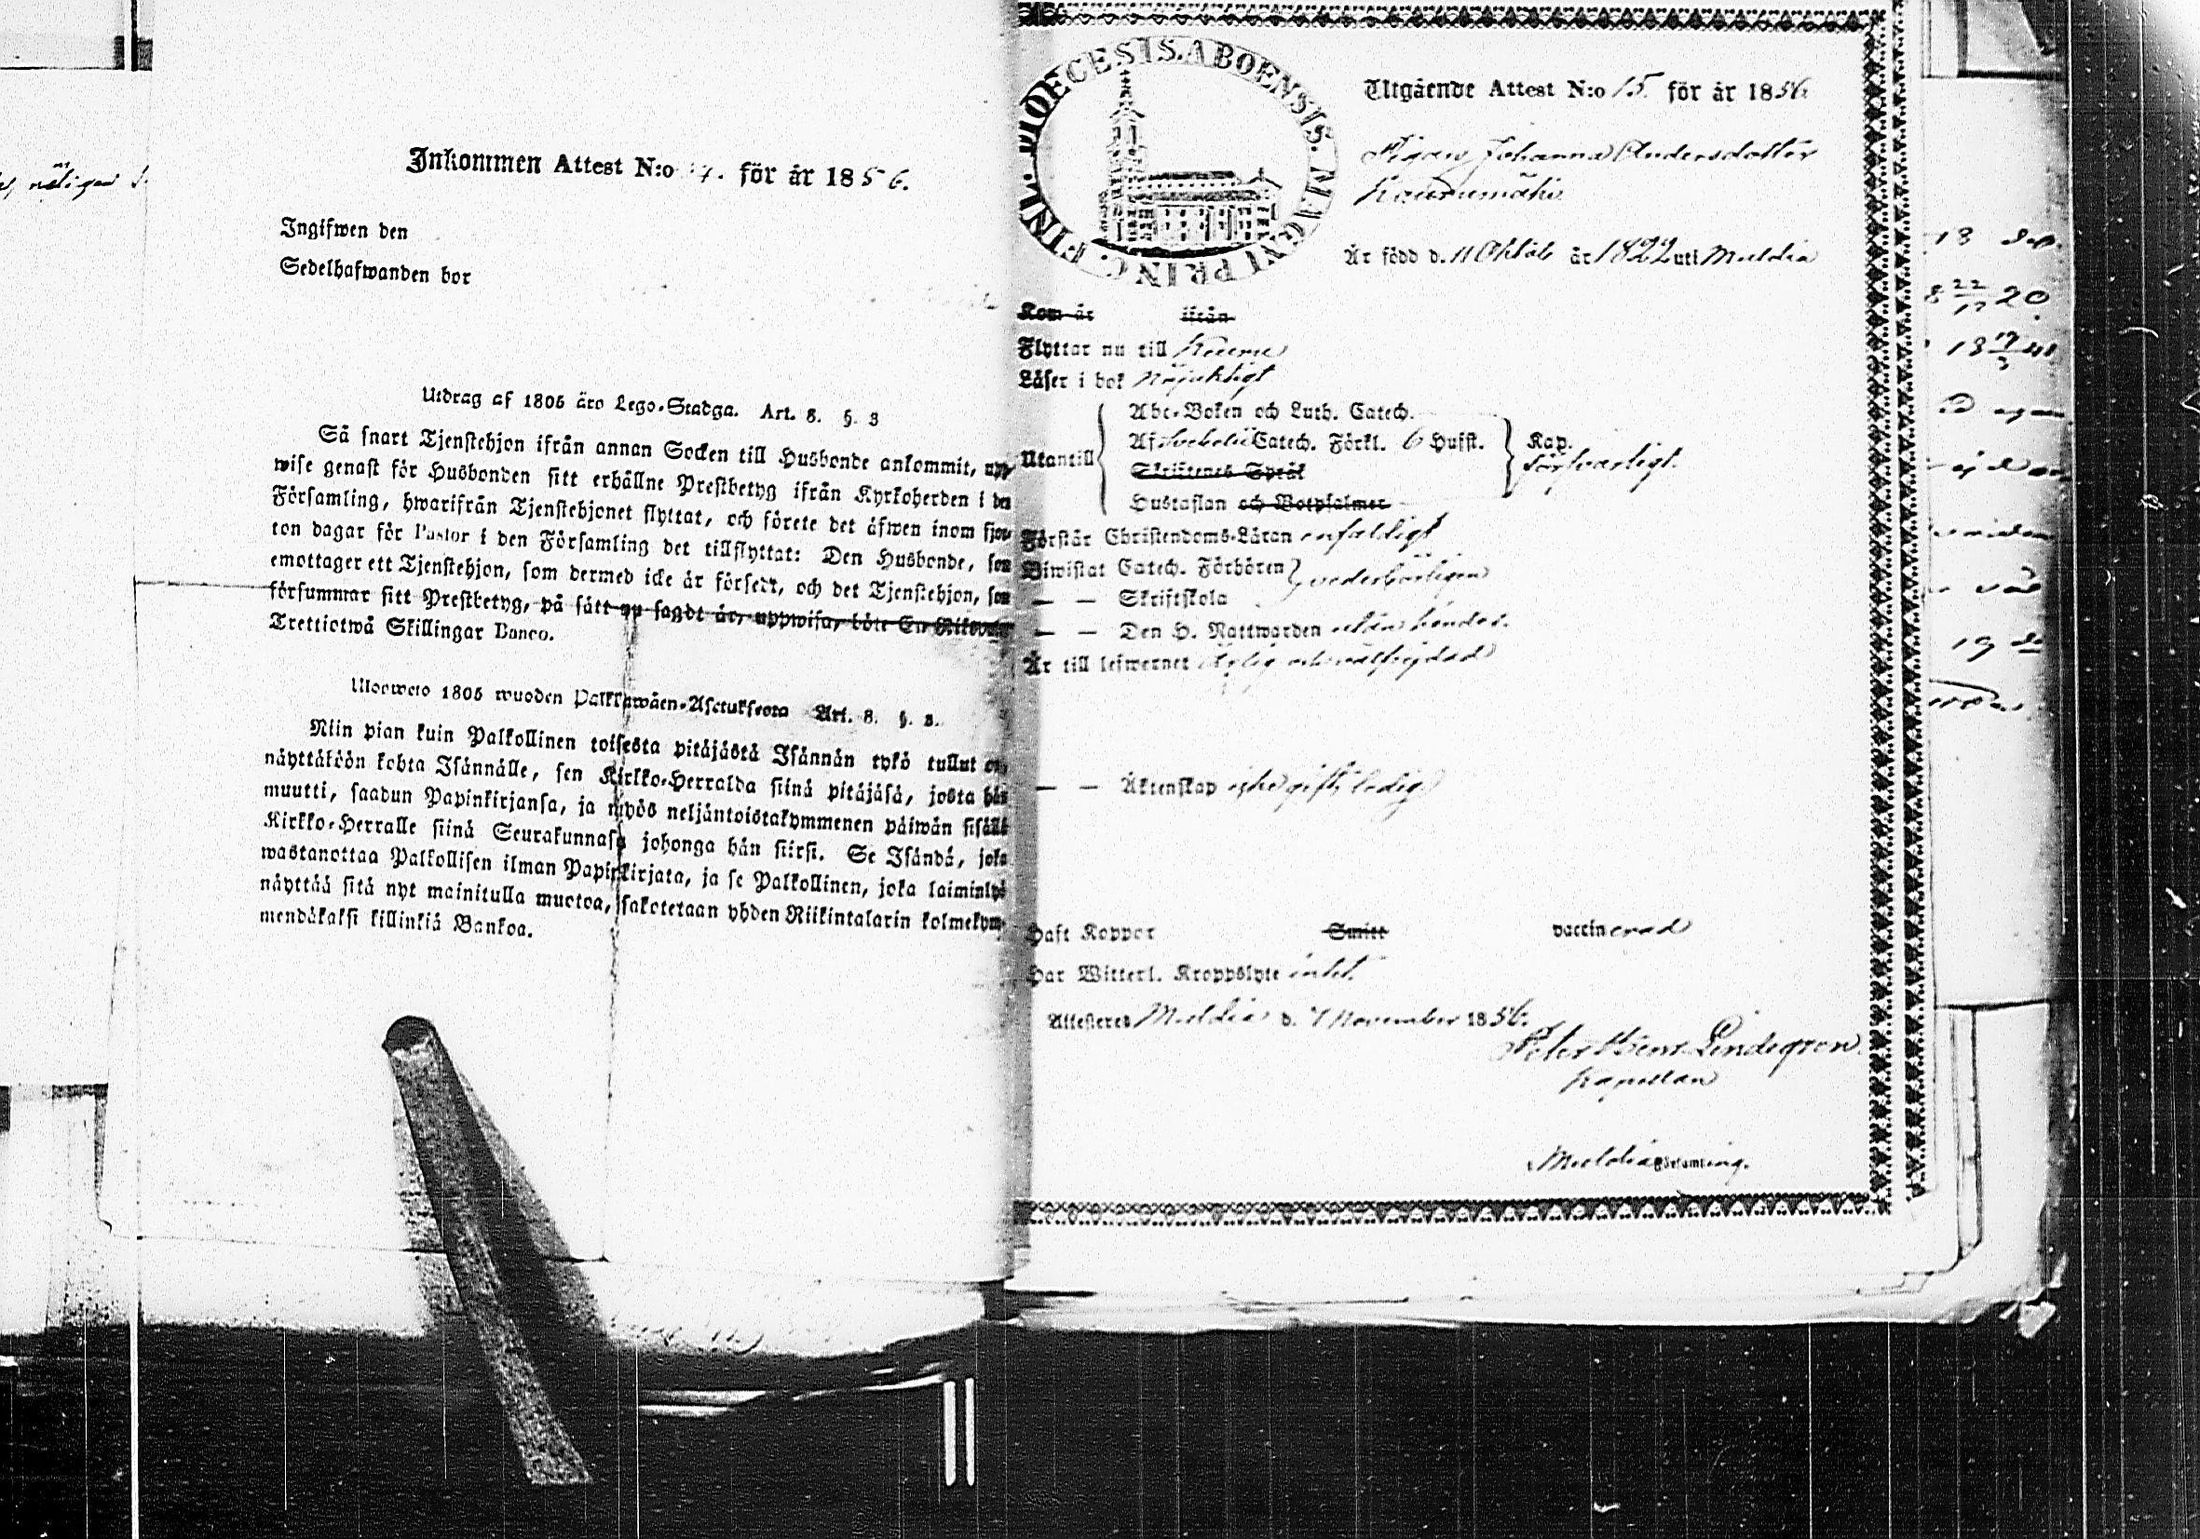 Inkommen Attest N:o 4. för år 1856.
Ingifwen den
Sedelhafwanden bor
Utdrag af 1805 års Lego-Stadga. Art. 8. §. 3
Så snart Tjenstehjon ifrån annan Socken till Husbonde ankommit, upp-
wise genast för Husbonden sitt erhållne Prestbetyg ifrån Kyrkoherden i den
Församling, hwarifrån Tjenstehjonet flyttat, och förete det äfwen inom fjor-
ton dagar för Pastor i den Församling det tillflyttat: Den Husbonde, som
emottager ett Tjenstehjon, som dermed icke är försedt, och det Tjenstehjon, som
försummar sitt Prestbetyg, på sått nu sagdt är, uppwisa, böte En Riksdaler
Trettiotwå Skillingar Banco.
Ulosweto 1805 wuoden Palkkawäen-Asetuksesta Art. 8. §. 3.
Niin pian kuin Palkollinen toisesta pitäjästä Isännän tykö tullut on,
näyttäköön kohta Isännälle, sen Kirkko-Herralda siinä pitäjäsä, josta hän
muutti, saadun Papinkirjansa, ja myös neljäntoistakymmenen päiwän sisällä
Kirkko-Herralle siinä Seurakunnasa johonga hän siirsi. Se Isändä, joka
wastanottaa Palkollisen ilman Papinkirjata, ja se Palkollinen, joka laiminlyö
näyttää sitä nyt mainitulla muotoa, sakotetaan yhden Riikintalarin kolmekym-
mendäkaksi killinkiä Bankoa.
FINL. DIOECESIS. ABOENSIS. MAGNI PRINC.
Utgående Attest N:o 15. för år 1856.
Pigan Johanna Andersdotter
Är född d. 11 Oktob år 1822 uti Muldia
Kom år ifrån
Flyttar nu till Keuru
Läser i bok nöjaktigt
Utantill
Abc-Boken och Luth. Catech.
Af Svebelii Catech. Förkl. 6 Hufst.
Skriftenes Språk
Hustaflan och Botpsalmer
Kap.
försvarligt.
Förstår Christendoms-Läran enfaldigt
Biwistat Catech. Förhören vederbörligen
— — Skriftskola
— — Den H. Nattwarden utan hinder.
Är till lefwernet Ärlig och välfrejdad
— — Äktenskap icke gift, ledig
Haft Koppor Smitt vaccinerad
Har Witterl. Kroppslyte intet.
Attesteras Muldia d. 7 November 1856.
Lindegren
Kapellan
Muldia Församling.